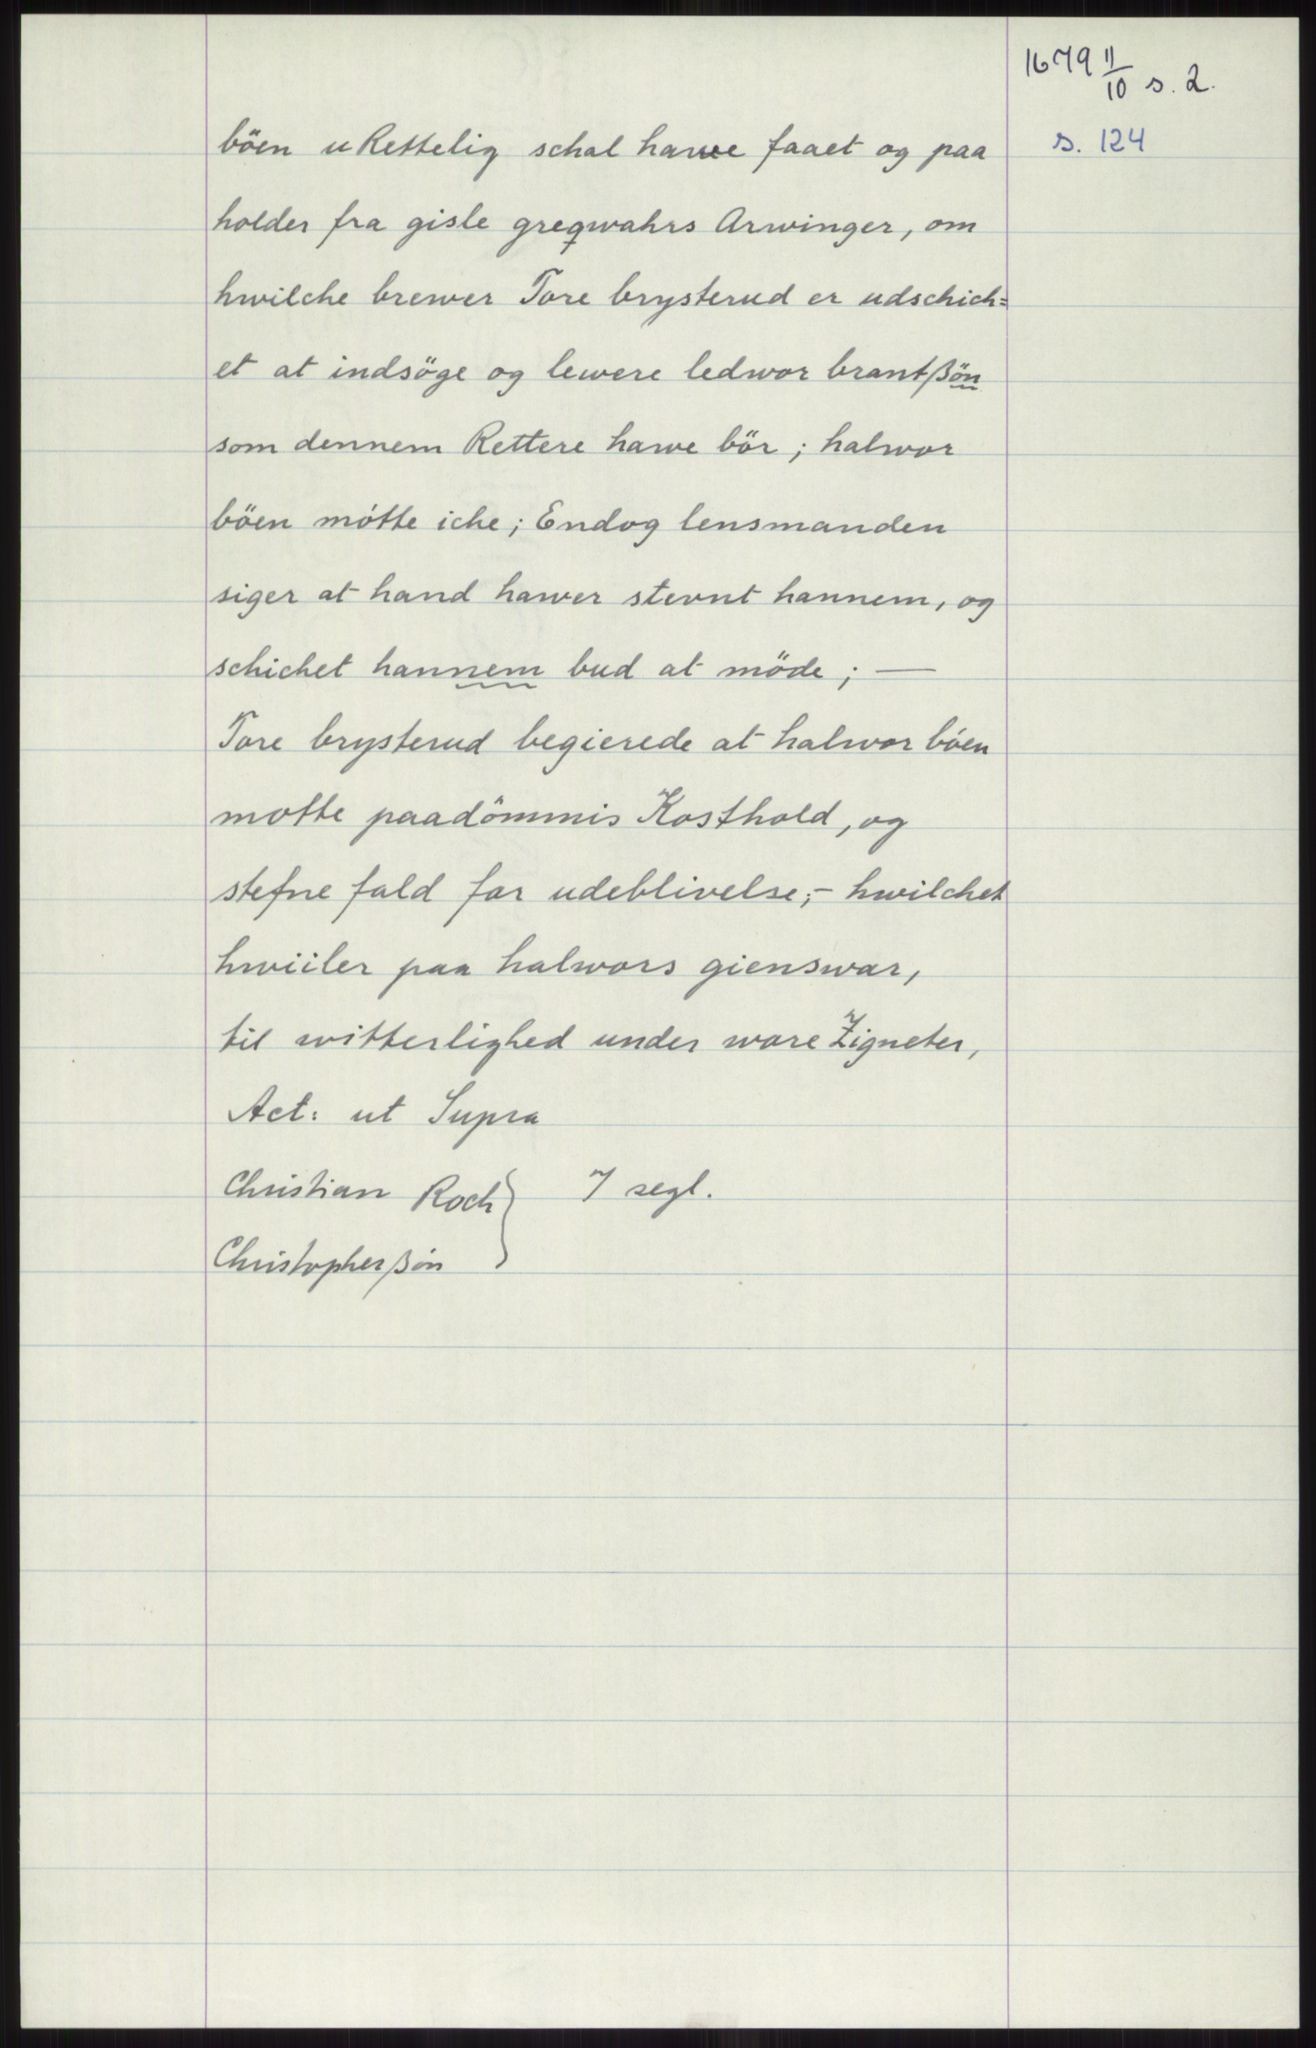 1679 11/10 s. 2.
s. 124
böen uRettelig schal hawe faaet og paa
holder fra gisle greqwahrs Arwinger, om
hwilche brewer Tore brysterud er udschich=
et at indsöge og lewere ledwor brantßön
som dennem Rettere hawe bör; halwor
böen mótte iche; Endog lensmanden
siger at hand hawer stevnt hannem, og
schichet hannem bud at möde; —
Tore brysterud begierede at halwor bóen
motte paadömmis Kosthold, og
stefne fald for udeblivelse;- hwilchet
hwiiler paa halwors gienswar,
til witterlighed under wore Zigneter,
Act: ut Supra
Christian Roch } 7 segl.
Christopherßón